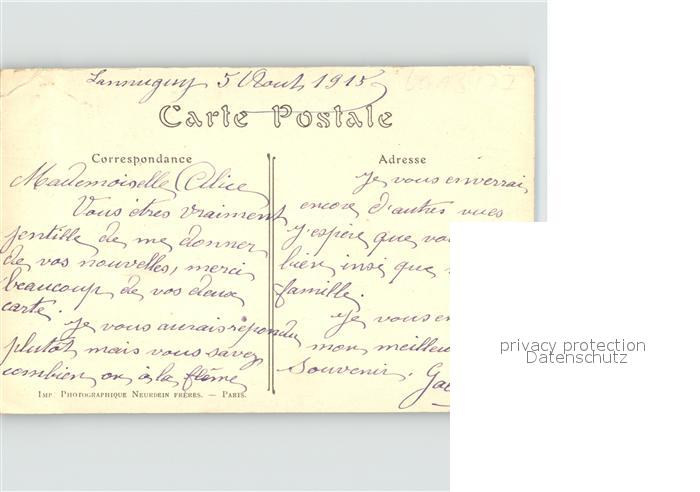 Lannuguy 5 Aout 1915
Carte Postale
Correspondance
Mademoiselle Alice
Vous êtres vraiment
jentille de me donner
de vos nouvelles, merci
beaucoup de vos deux
carte.
Je vous aurais répondu
plutôt mais vous savez
combien on à la flême
Adresse
Je vous enverrai
encore d'autres vues
J'espère que
bien insi que
famille.
Je vous
mon meilleu
Souvenir.
IMP. PHOTOGRAPHIQUE NEURDEIN FRÈRES. — PARIS.
privacy protection
Datenschutz